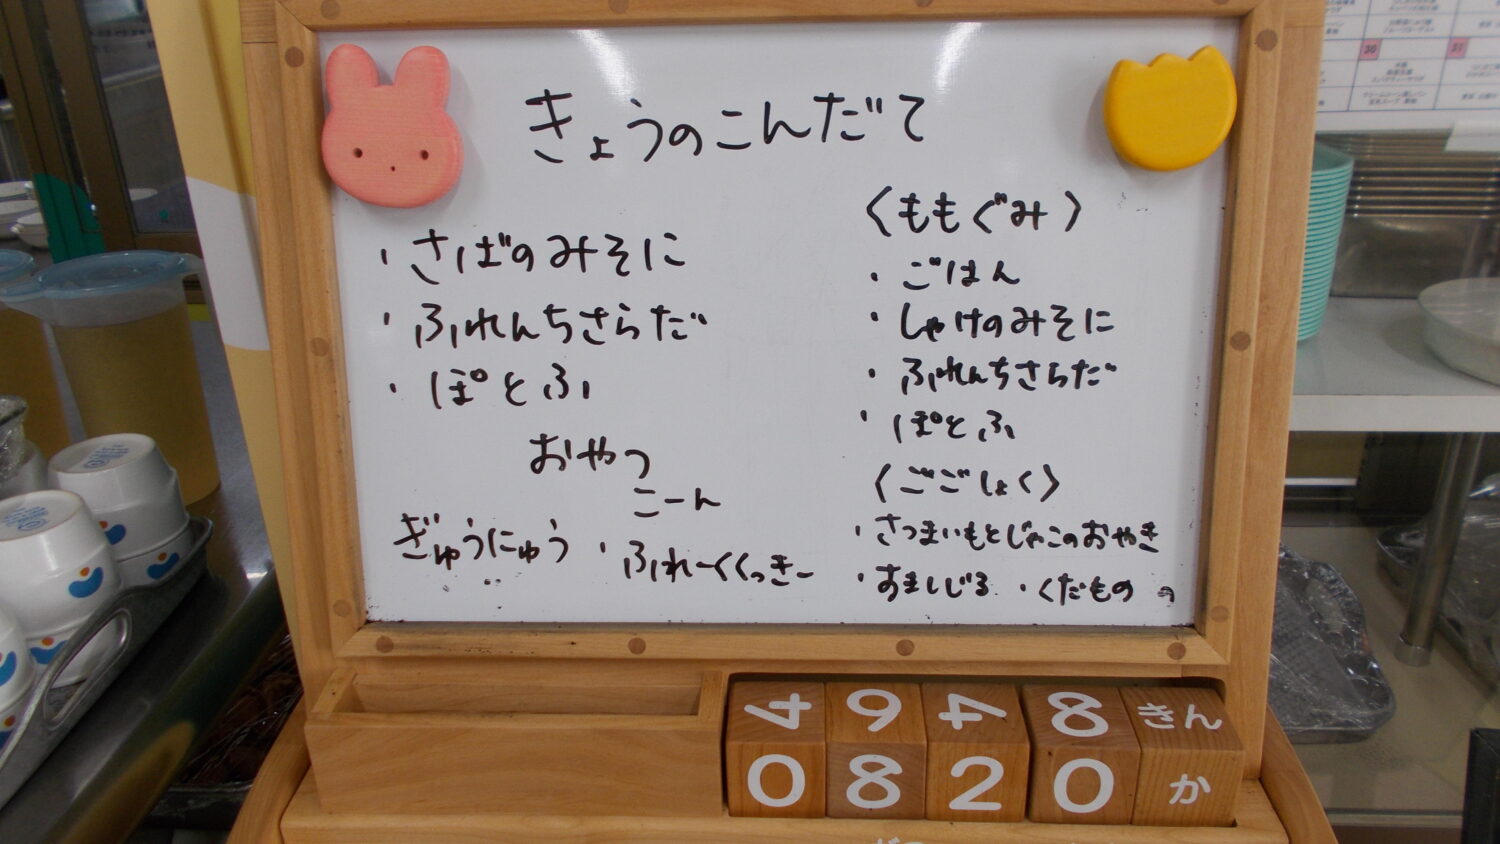 きょうのこんだて
・さばのみそに
・ふれんちさらだ
・ぽとふ
おやつ
ぎゅうにゅう ・こーんふれーくくっきー
〈ももぐみ〉
・ごはん
・しゃけのみそに
・ふれんちさらだ
・ぽとふ
〈ごごしょく〉
・さつまいもとじゃこのおやき
・すましじる ・くだもの
4 6 4 8 きん
0 8 2 0 か
30
31